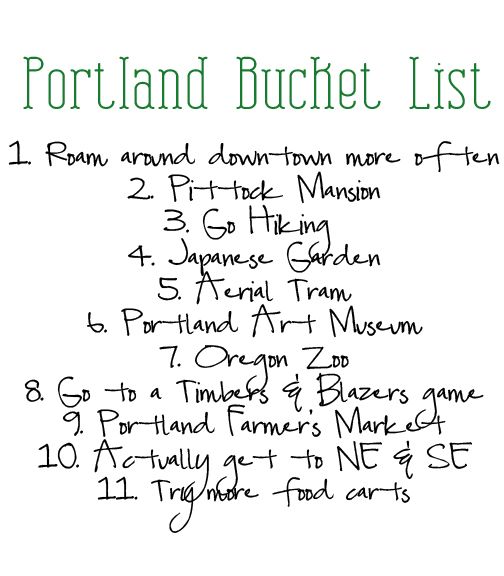 Portland Bucket List
1. Roam around downtown more often
2. Pittock Mansion
3. Go Hiking
4. Japanese Garden
5. Aerial Tram
6. Portland Art Museum
7. Oregon Zoo
8. Go to a Timbers & Blazers game
9. Portland Farmer's Market
10. Actually get to NE & SE
11. Try more food carts